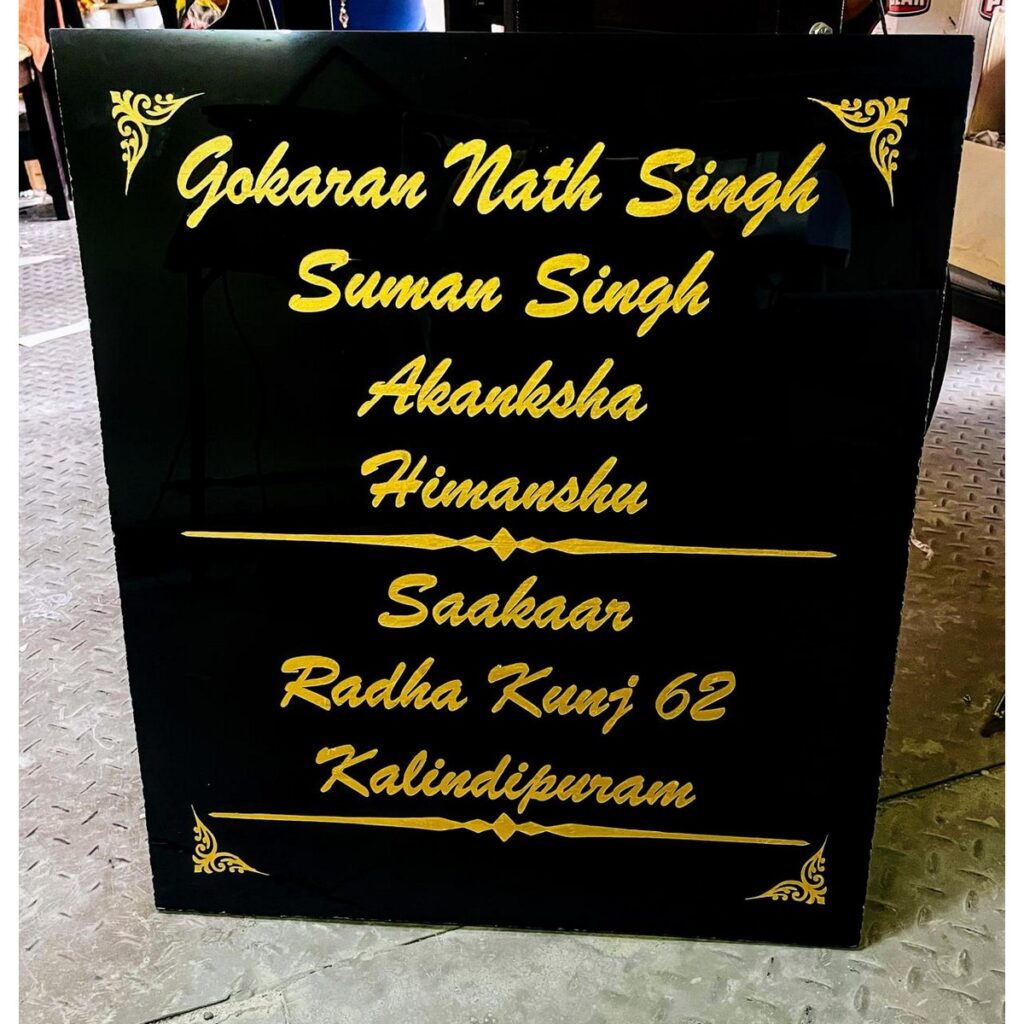 Gokaran Nath Singh
Suman Singh
Akanksha
Himanshu
Saakaar
Radha Kunj 62
Kalindipuram